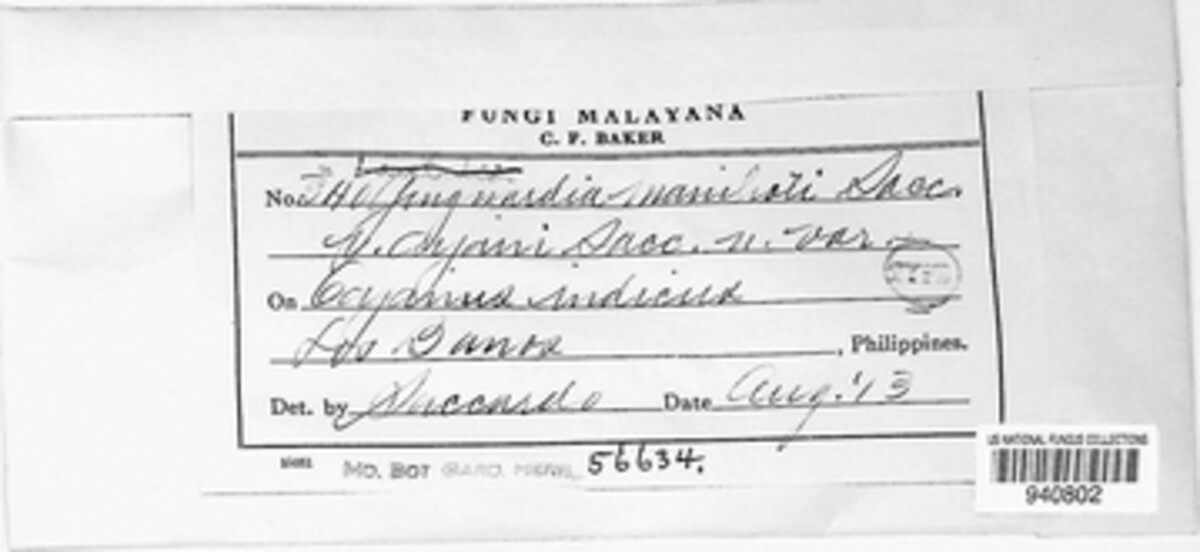 FUNGI MALAYANA
C. F. BAKER
No. Guignardia manihoti Sacc.
v. Cajani Sacc. n. var.
On Cajanus indicus
Los Banos, Philippines.
Det. by Saccardo Date Aug. '13
MO. BOT GARD. HERB. 56634.
US NATIONAL FUNGUS COLLECTIONS
940802